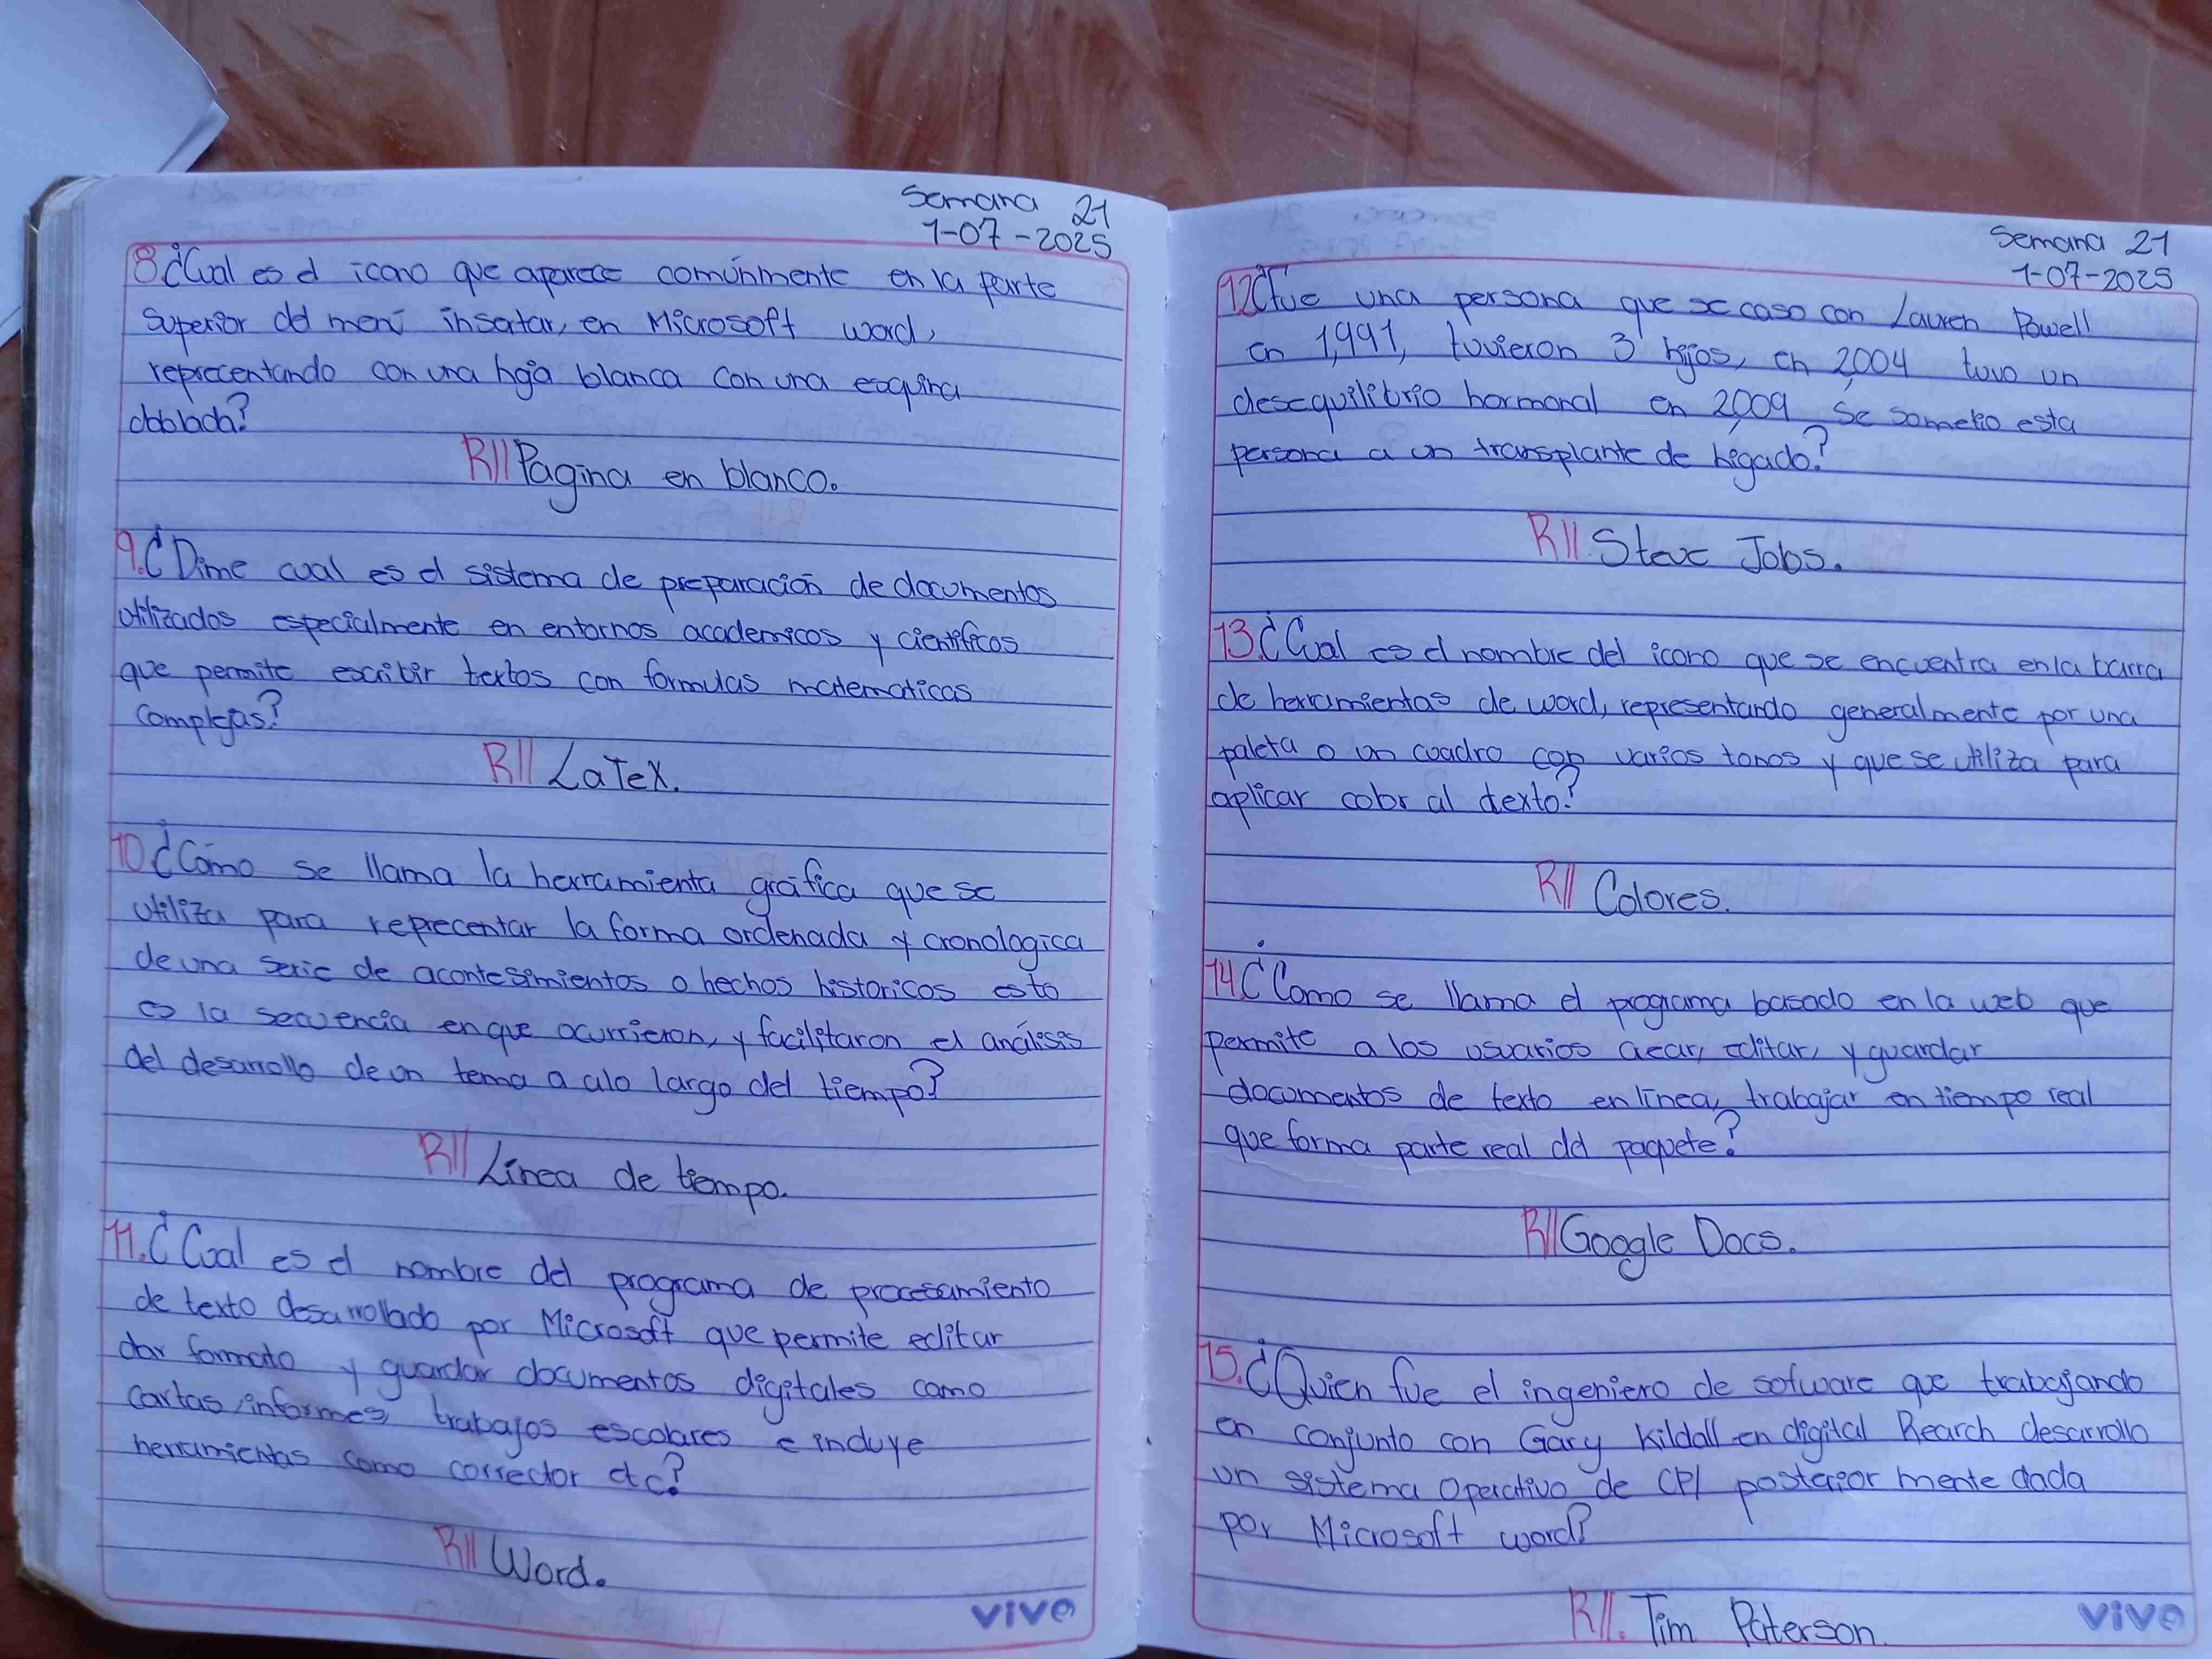 Semana 21
1-07-2025
8¿Cual es el icono que aparece comúnmente en la parte
Superior del menú insertar, en Microsoft word,
reprecentando con una hoja blanca con una esquina
doblada?
R// Pagina en blanco.
9.¿Dime cual es el sistema de preparación de documentos
utilizados especialmente en entornos academicos y cientificos
que permite escribir textos con formulas matematicas
complejas?
R// LaTeX.
10¿Cómo se llama la herramienta gráfica que se
utiliza para reprecentar la forma ordenada y cronologica
de una serie de acontesimientos o hechos historicos esto
es la secuencia en que ocurrieron, y facilitaron el análisis
del desarrollo de un tema a alo largo del tiempo?
R// Línea de tiempo.
11.¿Cual es el nombre del programa de procesamiento
de texto desarrollado por Microsoft que permite editar
dar formato y guardar documentos digitales como
cartas, informes, trabajos escolares e incluye
herramientas como corrector etc?
R// Word.
vive
Semana 21
1-07-2025
12¿Fue una persona que se caso con Lauren Powell
en 1,991, tuvieron 3 hijos, en 2,004 tuvo un
desequilibrio hormonal en 2,009 se sometio esta
persona a un transplante de hígado?
R//. Steve Jobs.
13.¿Cual es el nombre del icono que se encuentra en la barra
de herramientas de word, representando generalmente por una
paleta o un cuadro con varios tonos y que se utiliza para
aplicar color al texto?
R// Colores.
14¿Como se llama el programa basado en la web que
permite a los usuarios crear, editar, y guardar
documentos de texto en línea, trabajar en tiempo real
que forma parte real del paquete?
R// Google Docs.
15.¿Quien fue el ingeniero de sofware que trabajando
en conjunto con Gary Kildall en digital Rearch desarrollo
un sistema Operativo de CP/ posterior mente dada
por Microsoft word?
R//. Tim Paterson.
vive